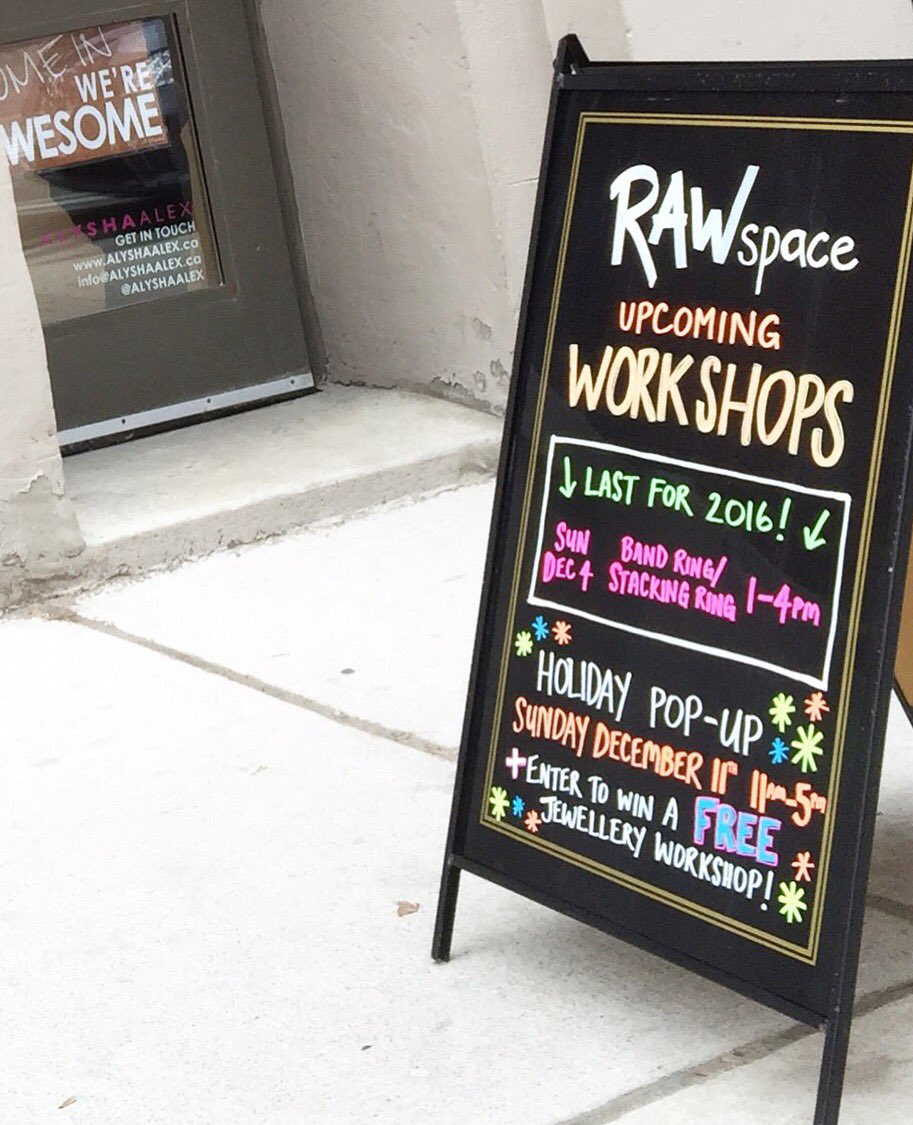 OME IN
WE'RE
WESOME
ALYSHAALEX
GET IN TOUCH
www.ALYSHAALEX.ca
info@ALYSHAALEX.ca
@ALYSHAALEX
RAWspace
UPCOMING
WORKSHOPS
↓ LAST FOR 2016! ↓
SUN DEC 4 BAND RING/ STACKING RING 1-4pm
HOLIDAY POP-UP
SUNDAY DECEMBER 11th 11am-5pm
+ENTER TO WIN A FREE
JEWELLERY WORKSHOP!